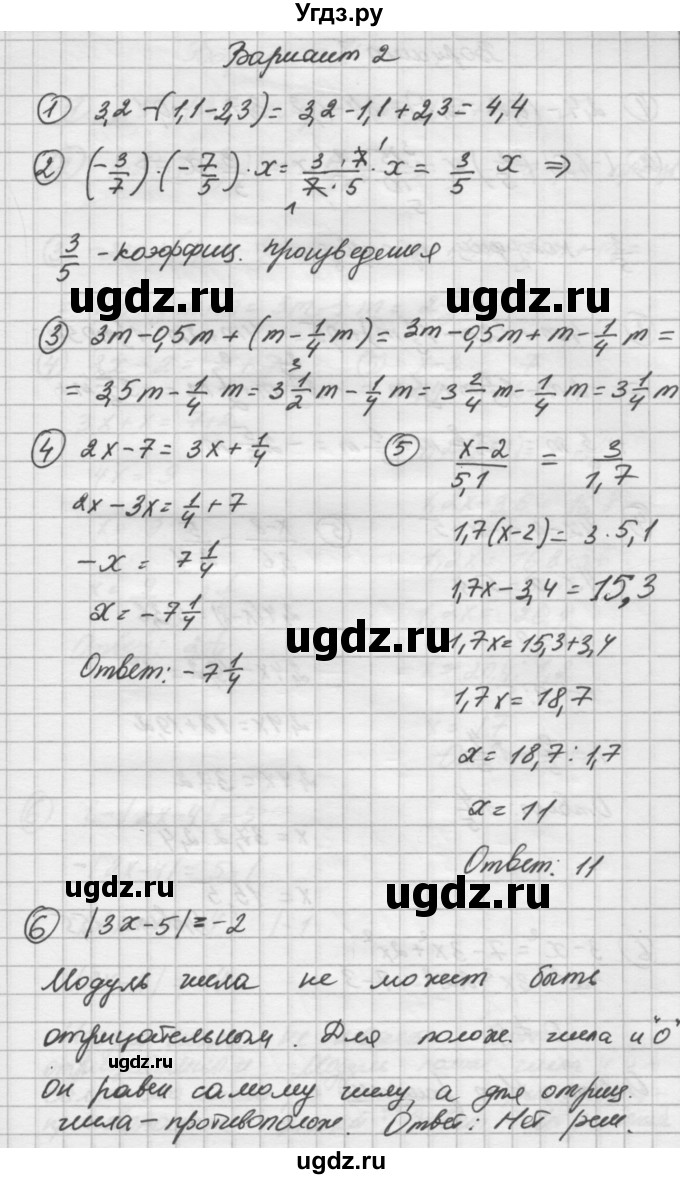 Угдз.ру
Вариант 2
① 3,2-(1,1-2,3)= 3,2-1,1+2,3= 4,4
② (-3/7)·(-7/5)·x= 3·7/7·5·x= 3/5 x ⇒
1
1
3/5 -коэффиц. произведения
ugdz.ru ugdz.ru
③ 3m-0,5m+(m-1/4m)= 3m-0,5m+m-1/4 m=
3
= 3,5m-1/4 m= 3 1/2m-1/4m= 3 2/4m-1/4m= 3 1/4m
④ 2x-7= 3x+1/4
2x-3x= 1/4+7
-x= 7 1/4
x= -7 1/4
Ответ: -7 1/4
⑤ x-2/5,1 = 3/1,7
1,7(x-2)= 3·5,1
1,7x-3,4=15,3
ugdz.ru
1,7x=15,3+3,4
1,7x=18,7
x= 18,7:1,7
x= 11
Ответ: 11
ugdz.ru ugdz.ru
⑥ |3x-5|=-2
Модуль числа не может быть
отрицательным. Для полож. числа и "0"
ugdz.ru
он равен самому числу, а для отриц.
числа-противополож. Ответ: Нет реш.
ugdz.ru